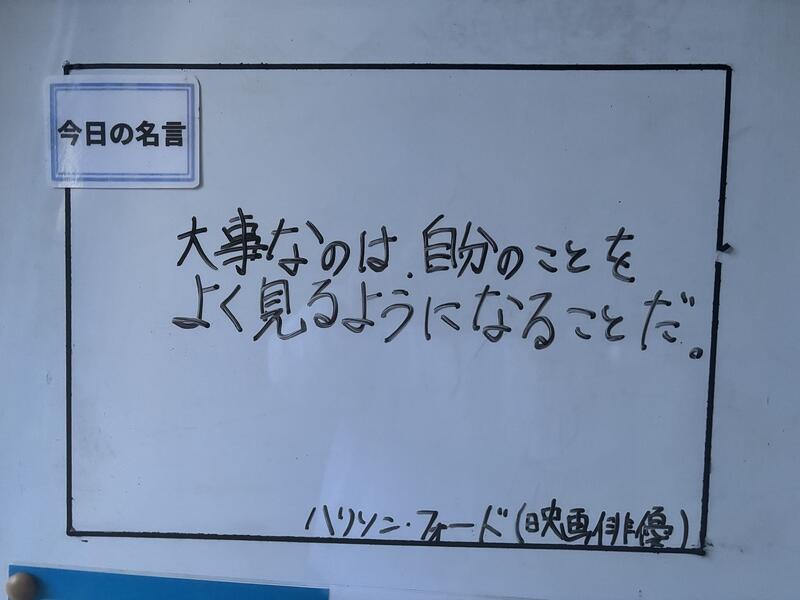 今日の名言
大事なのは、自分のことを
よく見るようになることだ。
ハリソン・フォード(映画俳優)